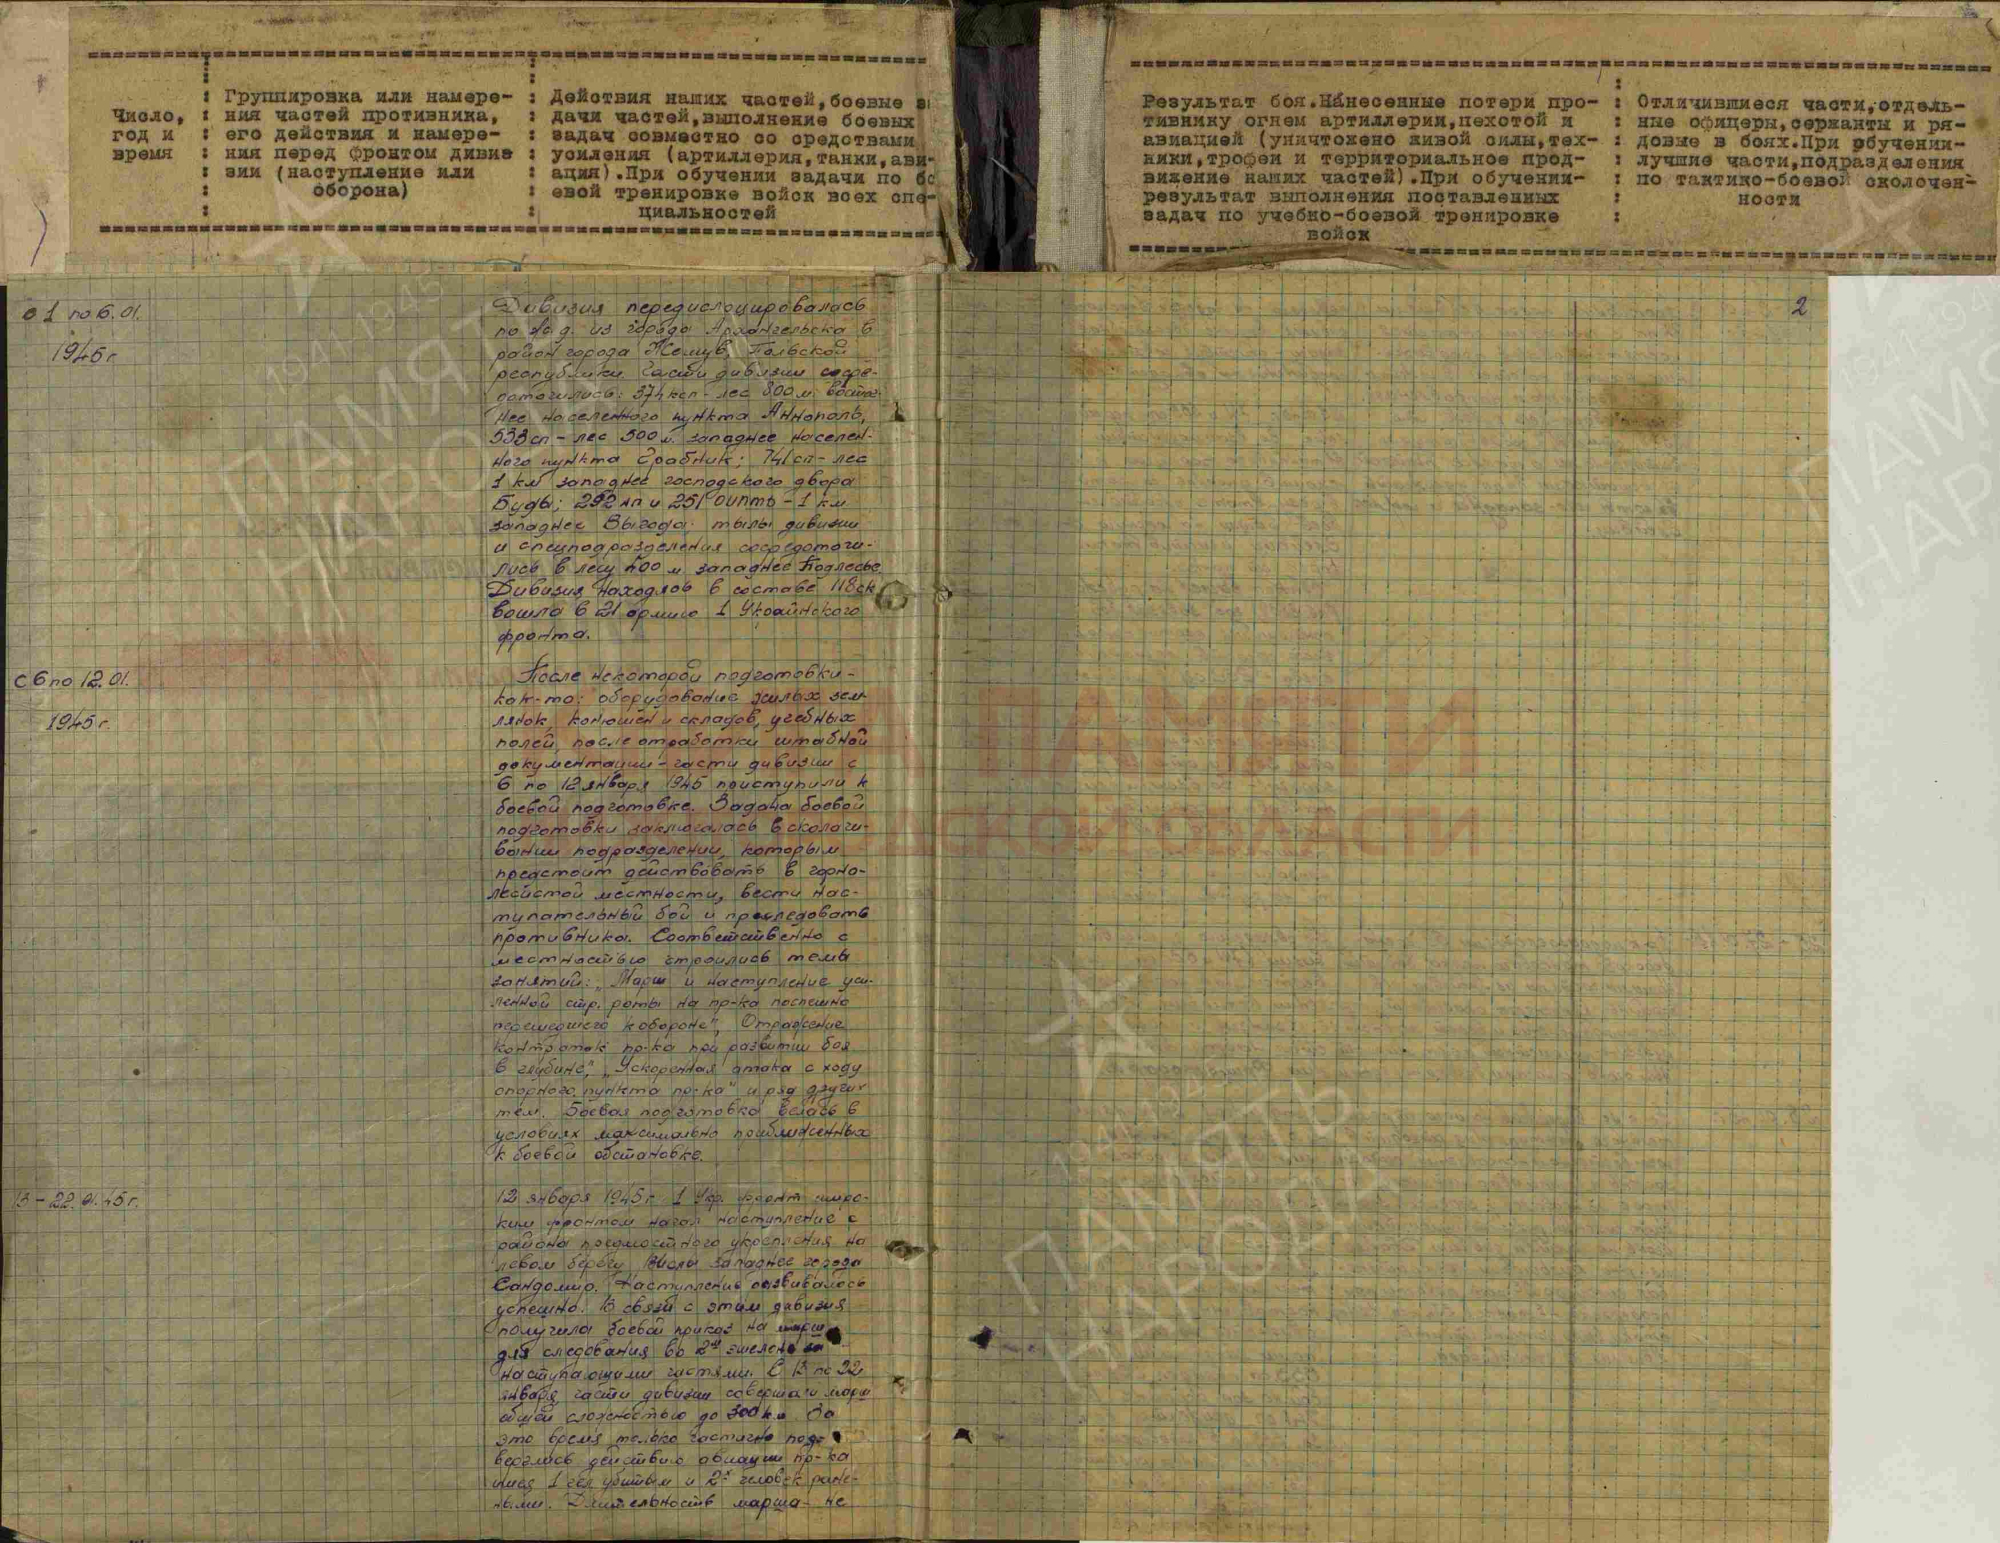 Число,
год и
время
Группировка или намере-
ния частей противника,
его действия и намере-
ния перед фронтом диви-
зии (наступление или
оборона)
Действия наших частей, боевые
дачи частей, выполнение боевых
задач совместно со средствами
усиления (артиллерия, танки, ави-
ация). При обучении задачи по бо
евой тренировке войск всех спе-
циальностей
Результат боя. Нанесенные потери про-
тивнику огнем артиллерии, пехотой и
авиацией (уничтожено живой силы, тех-
ники, трофеи и территориальное прод-
вижение наших частей). При обучении-
результат выполнения поставленных
задач по учебко-боевой тренировке
войск
Отличившиеся части, отдель-
ные офицеры, сержанты и ря-
довые в боях. При обучении-
лучшие части, подразделения
по тактико-боевой сколочен-
ности
2
с 1 по 6.01.
1945 г.
Дивизия передислоцировалась
по ж.д. из города Архангельска в
район города Жешув, Польской
республики. Части дивизии сосре-
доточились: 374 ксп - лес 800 м. восточ-
нее населенного пункта Аннополь,
533 сп - лес 500 м. западнее населен-
ного пункта Грабник; 741 сп - лес
1 км западнее господского двора
Буды; 292 ап и 251 оиптд - 1 км
западнее Выгода. тылы дивизии
и спецподразделения сосредоточи-
лись в лесу 500 м западнее Подлесье.
Дивизия находясь в составе 118 ск
вошла в 21 армию 1 Украинского
фронта.
с 6 по 12.01.
1945 г.
После некоторой подготовки -
как-то: оборудование жилых зем-
лянок, конюшен и складов, учебных
полей, после отработки штабной
документации - части дивизии с
6 по 12 января 1945 приступили к
боевой подготовке. Задача боевой
подготовки заключалась в сколачи-
вании подразделений, которым
предстоит действовать в горно-
лесистой местности, вести нас-
тупательный бой и преследовать
противника. Соответственно с
местностью строились темы
занятий: „Марш и наступление уси-
ленной стр. роты на пр-ка поспешно
перешедшего к обороне", Отражение
контратак пр-ка при развитии боя
в глубине", „Ускоренная атака с ходу
опорного пункта пр-ка" и ряд других
тем. Боевая подготовка велась в
условиях максимально приближенных
к боевой обстановке.
13 - 22.01.45 г.
12 января 1945 г. 1 Укр. фронт широ-
ким фронтом начал наступление с
района предмостного укрепления на
левом берегу Вислы западнее города
Сандомир. Наступление развивалось
успешно. В связи с этим дивизия
получила боевой приказ на марш
для следования во 2й эшелоне за
наступающими частями. С 13 по 22
января части дивизии совершали марш
общей сложностью до 300 км. За
это время только частично под-
верглись действию авиации пр-ка
имея 1 чел. убитым и 2х человек ране-
ными. Длительность марша не